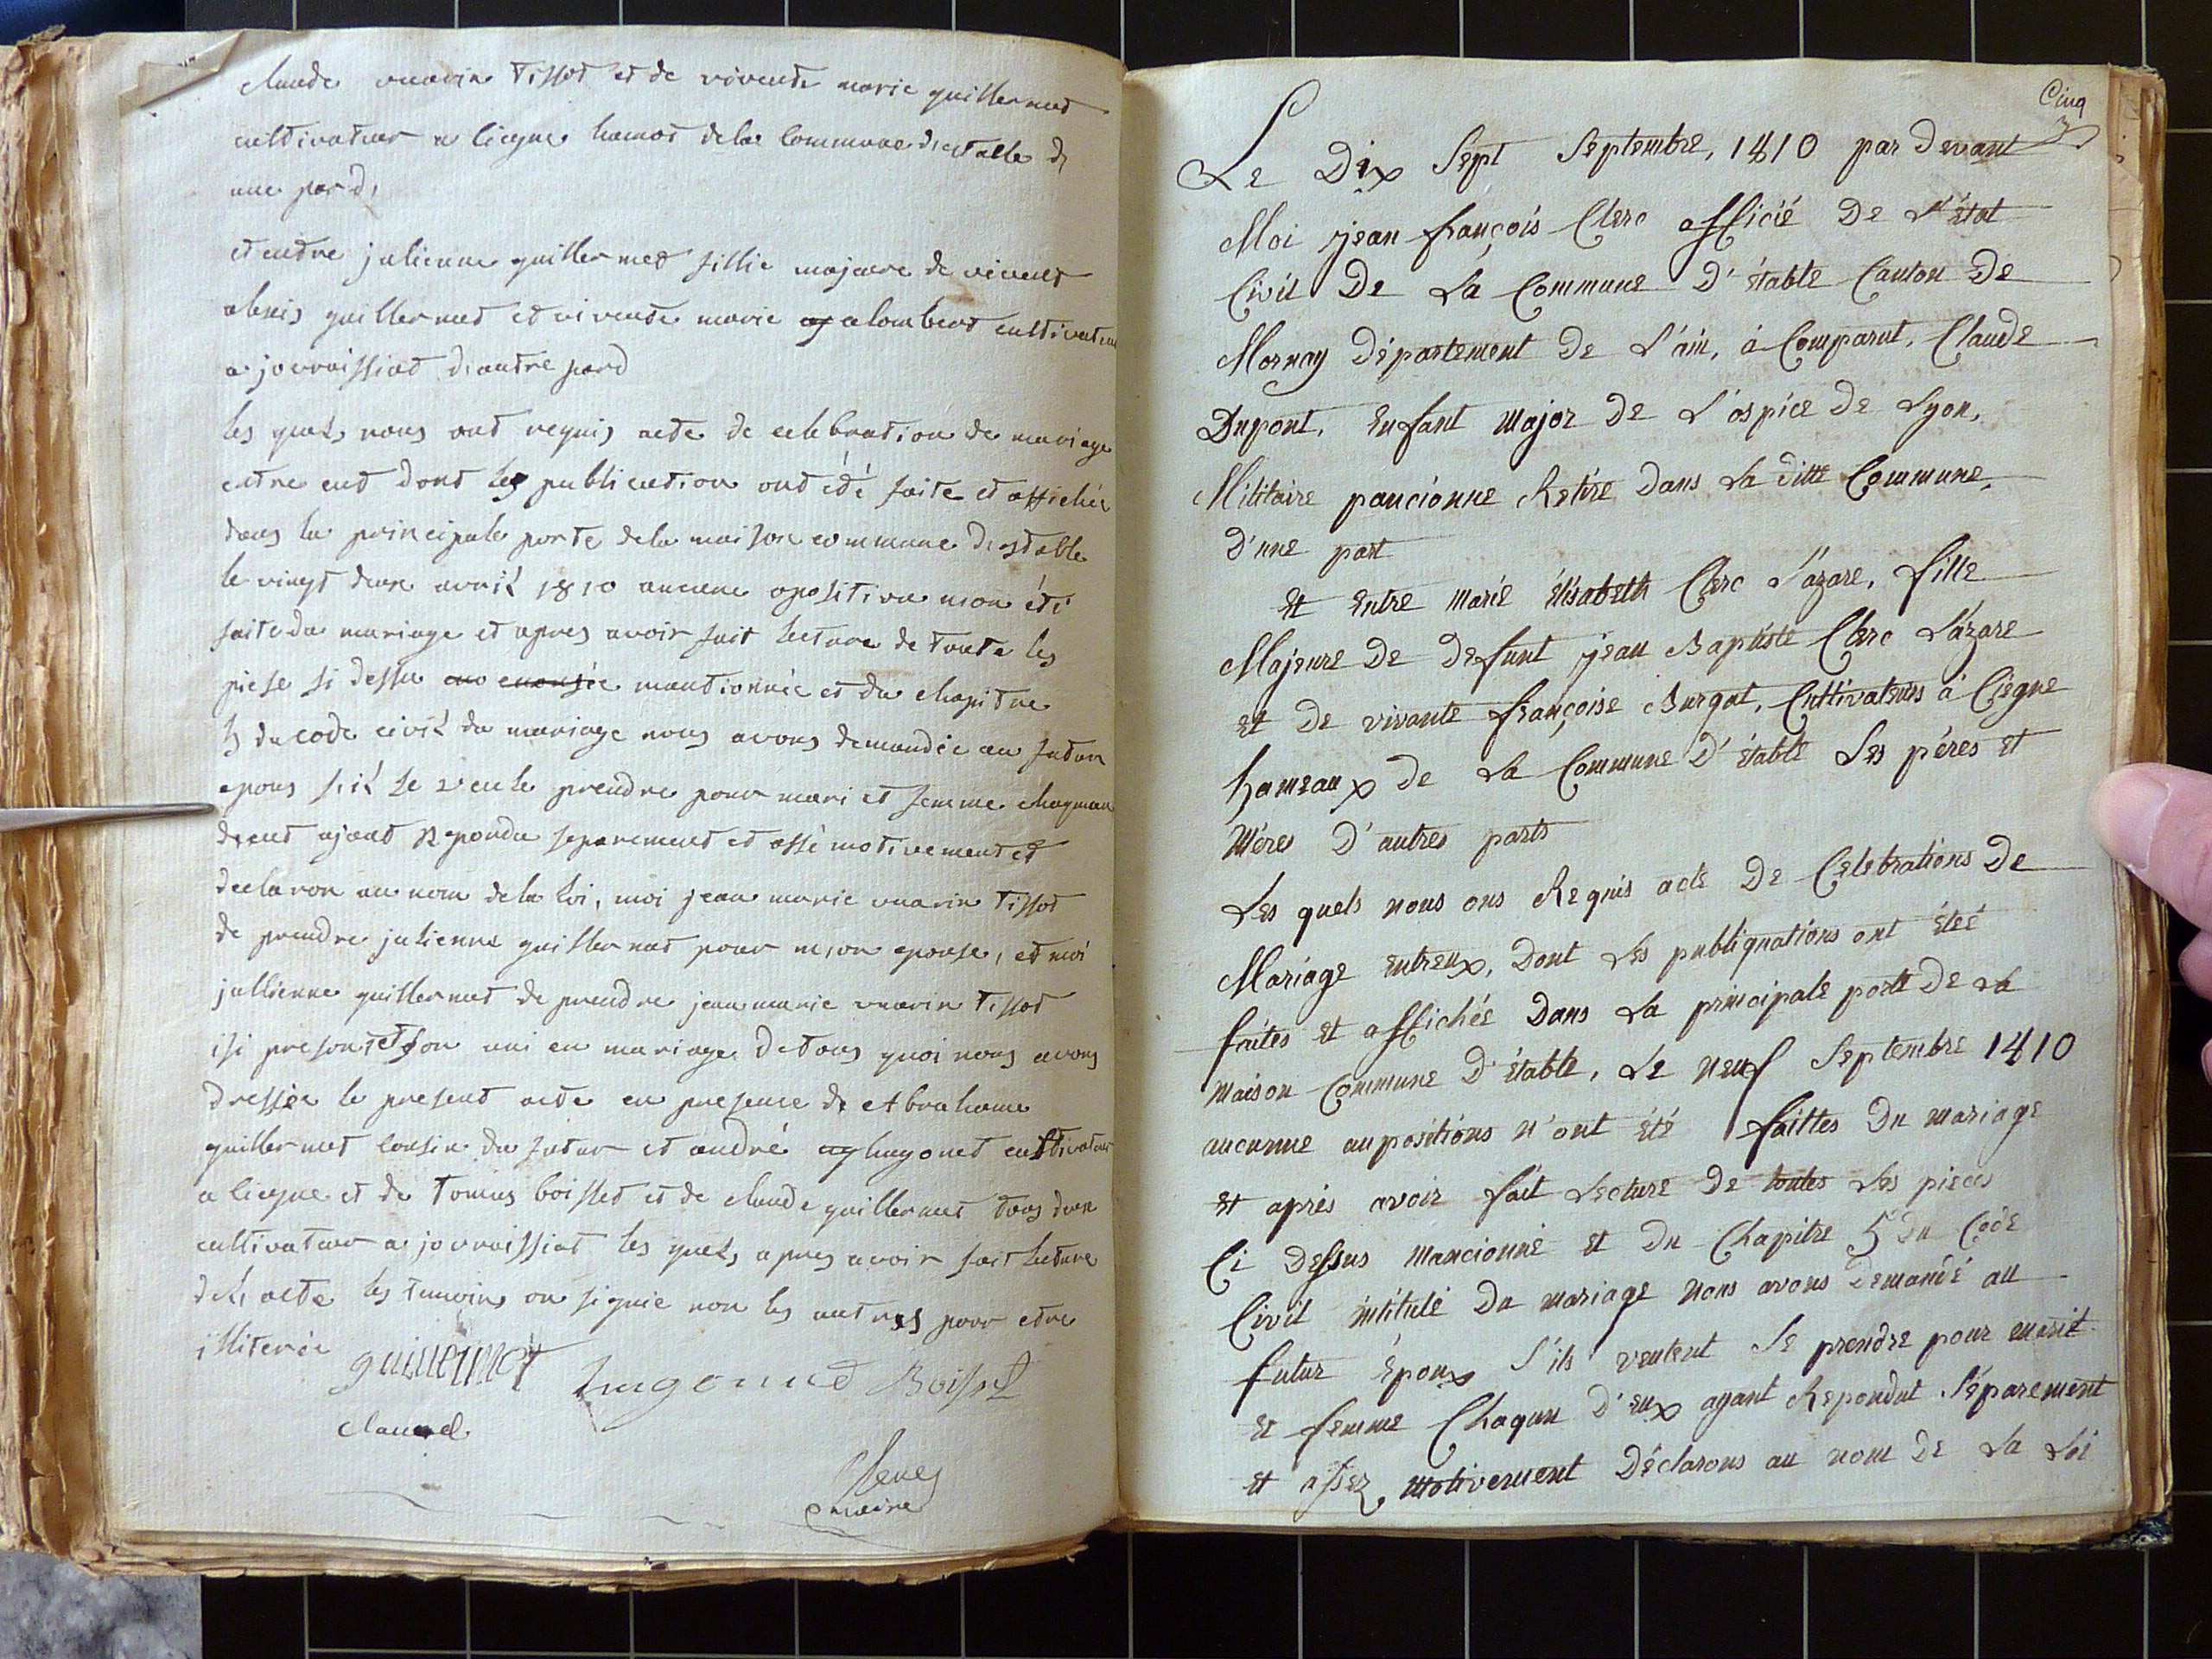 claude vuarin Tissot et de vivente marie guillermet
cultivateur a liegne hamot dela Commune destable d
une pard,
et entre julienne guillermet fillie majeure de vivent
alexis guillermet et vivente marie alombert cultivateur
a jovraissiat d'autre pard
les quels nous ont requis acte de celebration de mariage
entre eut dont les publication ont été faite et affichée
dans la principale porte dela maison commune destable
le vingt deux avril 1810 aucune oposition n'on été
faite du mariage et apres avoir fait lecture de toute les
piese si dessu mantionnée et du chapitre
5 du code civil du mariage nous avons demandée au futur
epous s'il se veule prendre pour mari et femme chaqunn
deut ajant repondu separement et assé motivement et
declaron au nom dela loi, moi jean marie vuarin Tissot
de prendre julienne guillermet pour mon epouse, et moi
jullienne guillermet de prendre jean marie vuarin Tissot
isi present et son uni en mariage de tous quoi nous avons
dressée le present acte en presence de abrahame
guillermet cousin du futur et andré hugonet cultivateur
a liegne et de Tomas boisset et de claude guillermet tous deux
cultivateur a jovraissiat les quels apres avoir fait lecture
del, acte les temoins on signie non les autres pour etre
illiterée
guillermet hugonnet Boisset
Claude
Maire
Cinq
Le Dix Sept Septembre, 1810 par Devant
Moi jean françois Clerc officié De L'état
Civil De La Commune D'étable Canton De
Mornay Département De L'ain, à Comparut, Claude
Dupont, Enfant Major De L'ospice De Lyon,
Militaire pancionne Retiré Dans La ditte Commune,
D'une part
Et Entre Marie Élisabeth Clerc Lazare, fille
Majeure De Defunt jean Baptiste Clerc Lazare
Et De vivante françoise Burgat, Cultivateurs à Ciegne
hameaux De La Commune D'étable Les pères Et
Mères D'autres parts
Les quels nous ons Requis acte De Celebrations De
Mariage Entreux, Dont Les publiquations ont étéé
faites Et affichée Dans La principale porte De La
Maison Commune D'étable, Le neuf Septembre 1810
aucunne aupositions n'ont été faittes Du mariage
Et après avoir fait Lecture De toutes Les pieces
Ci Dessus Mancionné Et Du Chapitre 5 Du Code
Civil intitulé Du mariage nous avons Demandé au
futur époux S'ils veulent Se prendre pour marit
Et femme Chaqun D'eux ayant Repondut Séparement
Et assez, motivement Déclarons au nom De La Loi